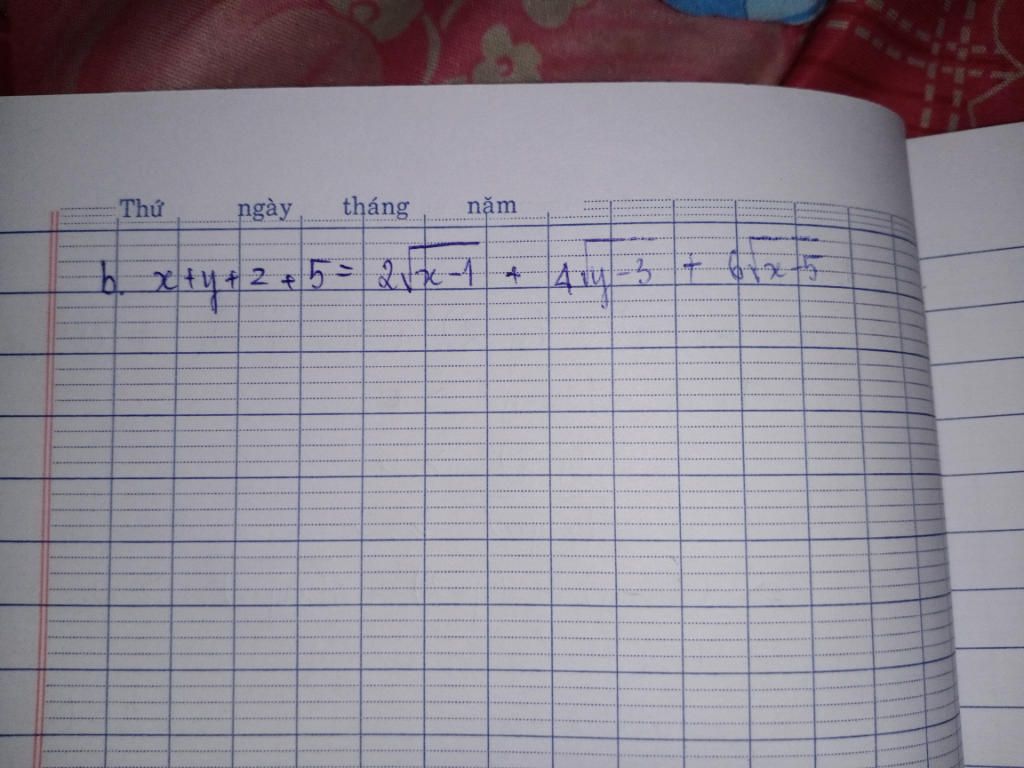 Thứ ngày tháng năm
b. x + y + 2 + 5 = 2√x-1 + 4√y-3 + 6√x-5